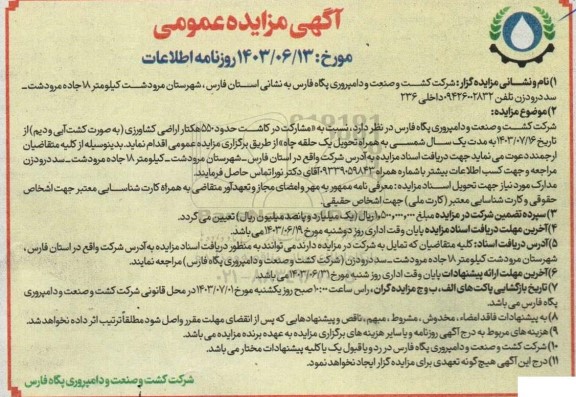 آگهی مزایده عمومی
مورخ: ۱۴۰۳/۰۶/۱۳ روزنامه اطلاعات
۱) نام و نشانی مزایده گزار: شرکت کشت و صنعت و دامپروری پگاه فارس به نشانی استان فارس، شهرستان مرودشت کیلومتر ۱۸ جاده مرودشت ـ
سد درودزن تلفن ۰۹۴۲۶۰۰۲۸۳۲ داخلی ۲۳۶
۲) موضوع مزایده:
شرکت کشت و صنعت و دامپروری پگاه فارس در نظر دارد، نسبت به «مشارکت در کاشت حدود ۵۵۰ هکتار اراضی کشاورزی (به صورت کشت آبی و دیم) از
تاریخ ۱۴۰۳/۰۷/۱۶ به مدت یک سال شمسی به همراه تحویل یک حلقه چاه» از طریق برگزاری مزایده عمومی اقدام نماید. بدینوسیله از کلیه متقاضیان
ارجمند دعوت می نماید جهت دریافت اسناد مزایده به آدرس شرکت واقع در استان فارس ـ شهرستان مرودشت ـ کیلومتر ۱۸ جاده مرودشت ـ سد درودزن
مراجعه و جهت کسب اطلاعات بیشتر با شماره همراه ۰۹۳۳۹۰۵۹۸۴۳ آقای دکتر نوراتماس حاصل فرمایند.
مدارک مورد نیاز جهت تحویل اسناد مزایده: معرفی نامه ممهور به مهر و امضای مجاز و تعهدآور متقاضی به همراه کارت شناسایی معتبر جهت اشخاص
حقوقی و کارت شناسایی معتبر (کارت ملی) جهت اشخاص حقیقی.
۳) سپرده تضمین شرکت در مزایده مبلغ ۱،۵۰۰،۰۰۰،۰۰۰ ریال (یک میلیارد و پانصد میلیون ریال) تعیین می گردد.
۴) آخرین مهلت دریافت اسناد مزایده پایان وقت اداری روز دوشنبه مورخ ۱۴۰۳/۰۶/۱۹ می باشد.
۵) آدرس دریافت اسناد: کلیه متقاضیان که تمایل به شرکت در مزایده دارند می توانند به منظور دریافت اسناد مزایده به آدرس شرکت واقع در استان فارس،
شهرستان مرودشت کیلومتر ۱۸ جاده مرودشت ـ سد درودزن (شرکت کشت و صنعت و دامپروری پگاه فارس) مراجعه نمایند.
۶) آخرین مهلت ارائه پیشنهادات پایان وقت اداری روز شنبه مورخ ۱۴۰۳/۰۶/۳۱ می باشد.
۷) تاریخ بازگشایی پاکت های الف، ب و ج مزایده گران، راس ساعت ۱۰:۰۰ صبح روز یکشنبه مورخ ۱۴۰۳/۰۷/۰۱ در محل قانونی شرکت کشت و صنعت و دامپروری
پگاه فارس می باشد.
۸) به پیشنهادات فاقد امضاء، مخدوش، مشروط، مبهم، ناقص و پیشنهادهایی که پس از انقضای مهلت مقرر واصل شود مطلقاً ترتیب اثر داده نخواهد شد.
۹) هزینه های مربوط به درج آگهی روزنامه و یا سایر هزینه های برگزاری مزایده به عهده برنده مزایده می باشد.
۱۰) شرکت کشت و صنعت و دامپروری پگاه فارس در رد و یا قبول یک یا کلیه پیشنهادات مختار می باشد.
۱۱) درج این آگهی هیچ گونه تعهدی برای مزایده گزار ایجاد نخواهد نمود.
شرکت کشت و صنعت و دامپروری پگاه فارس